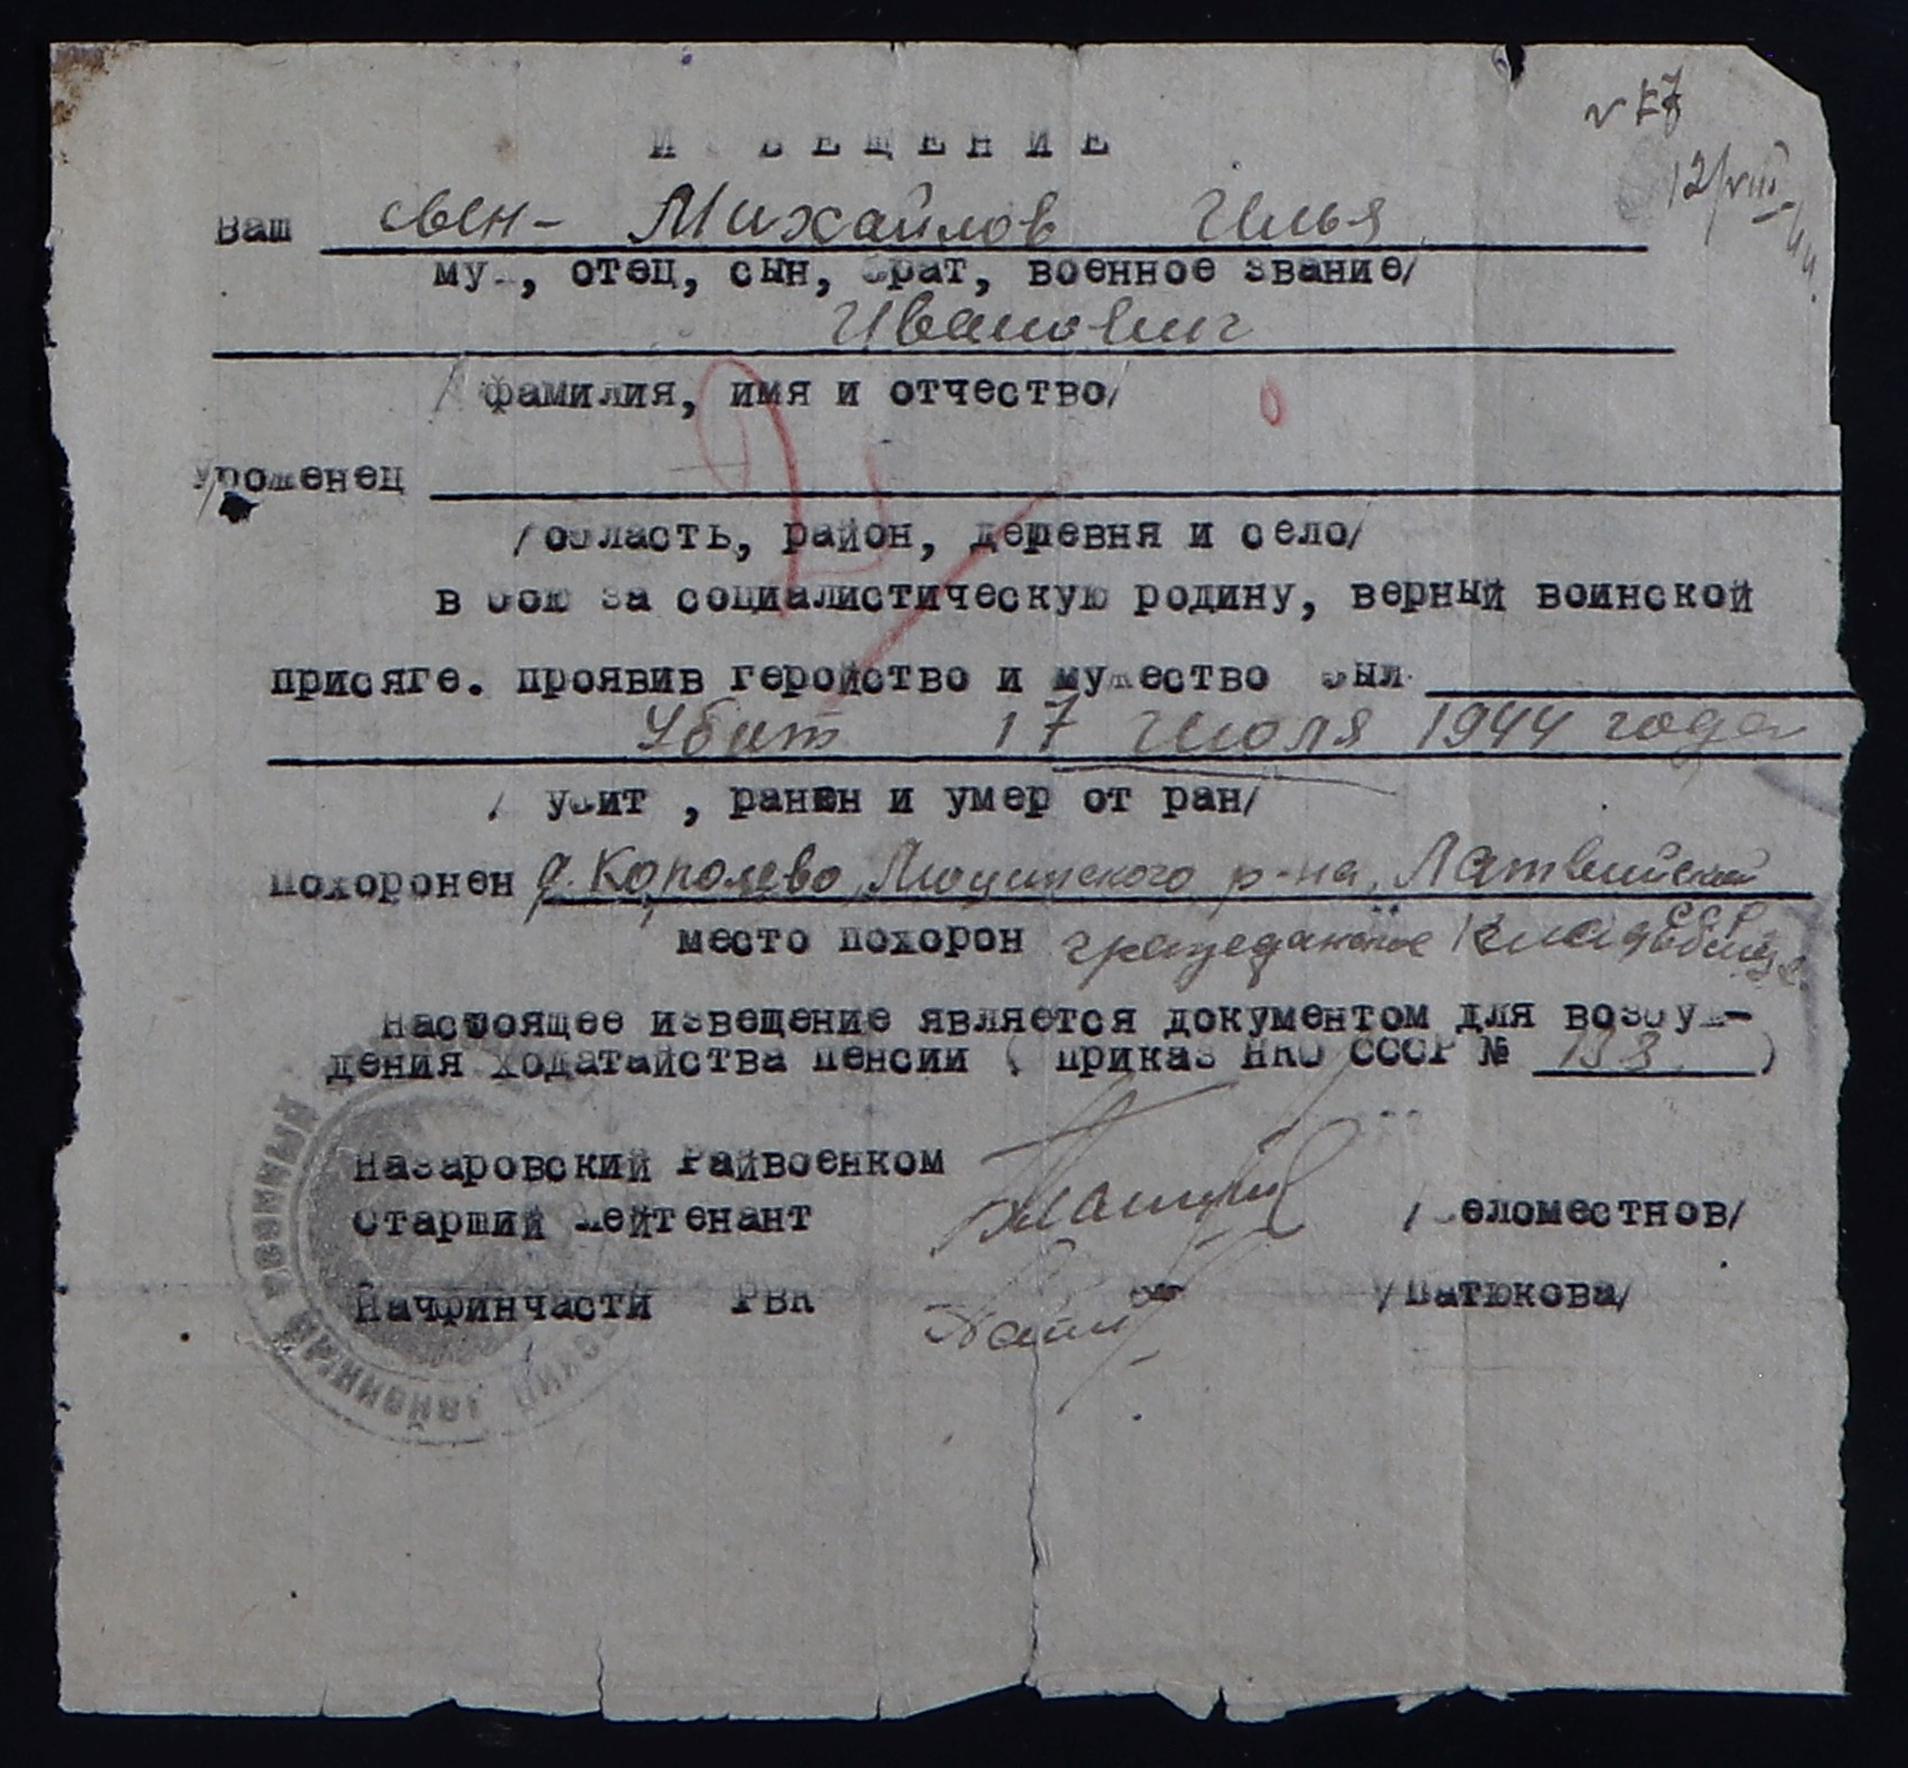 ИЗВЕЩЕНИЕ
12/VIII-44.
Ваш сын- Михайлов Илья
муж, отец, сын, брат, военное звание/
Иванович
/фамилия, имя и отчество/
Уроженец
/область, район, деревня и село/
в бою за социалистическую родину, верный воинской
присяге. проявив геройство и мужество был
убит 17 июля 1944 года
/ убит , ранен и умер от ран/
Похоронен д. Кополево, Люцинского р-на, Латвийской
ССР
место похорон гражданское кладбище
Настоящее извещение является документом для возбуж-
дения ходатайства пенсии ( приказ НКО СССР № 193 )
Назаровский Райвоенком
Старший Лейтенант /Беломестнов/
Начфинчасти РВК /Батюкова/